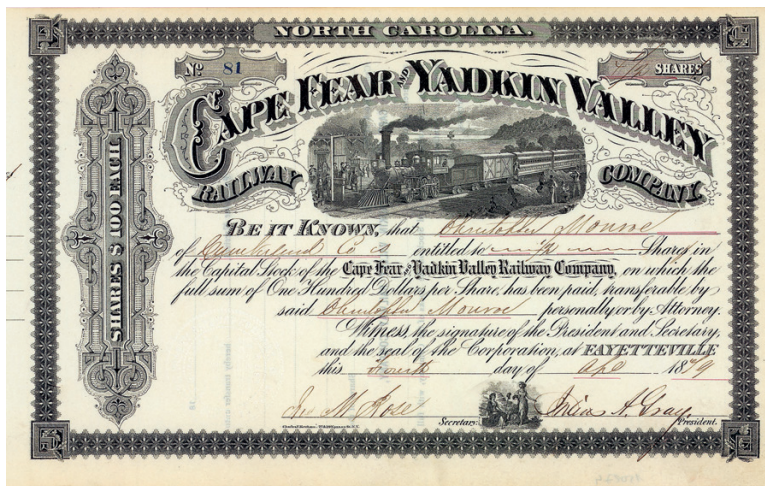 NORTH CAROLINA.
No 81 SHARES
CAPE FEAR AND YADKIN VALLEY
RAILWAY COMPANY
SHARES $100 EACH
BE IT KNOWN, that Christopher Monroe
of Cumberland Co is entitled to Shares in
the Capital Stock of the Cape Fear and Yadkin Valley Railway Company, on which the
full sum of One Hundred Dollars per Share, has been paid, transferable by
said Christopher Monroe personally or by Attorney.
Witness, the signature of the President and Secretary,
and the seal of the Corporation, at FAYETTEVILLE
this Fourth day of Apl 1879
Jno M. Rose Secretary. Julius A. Gray President.